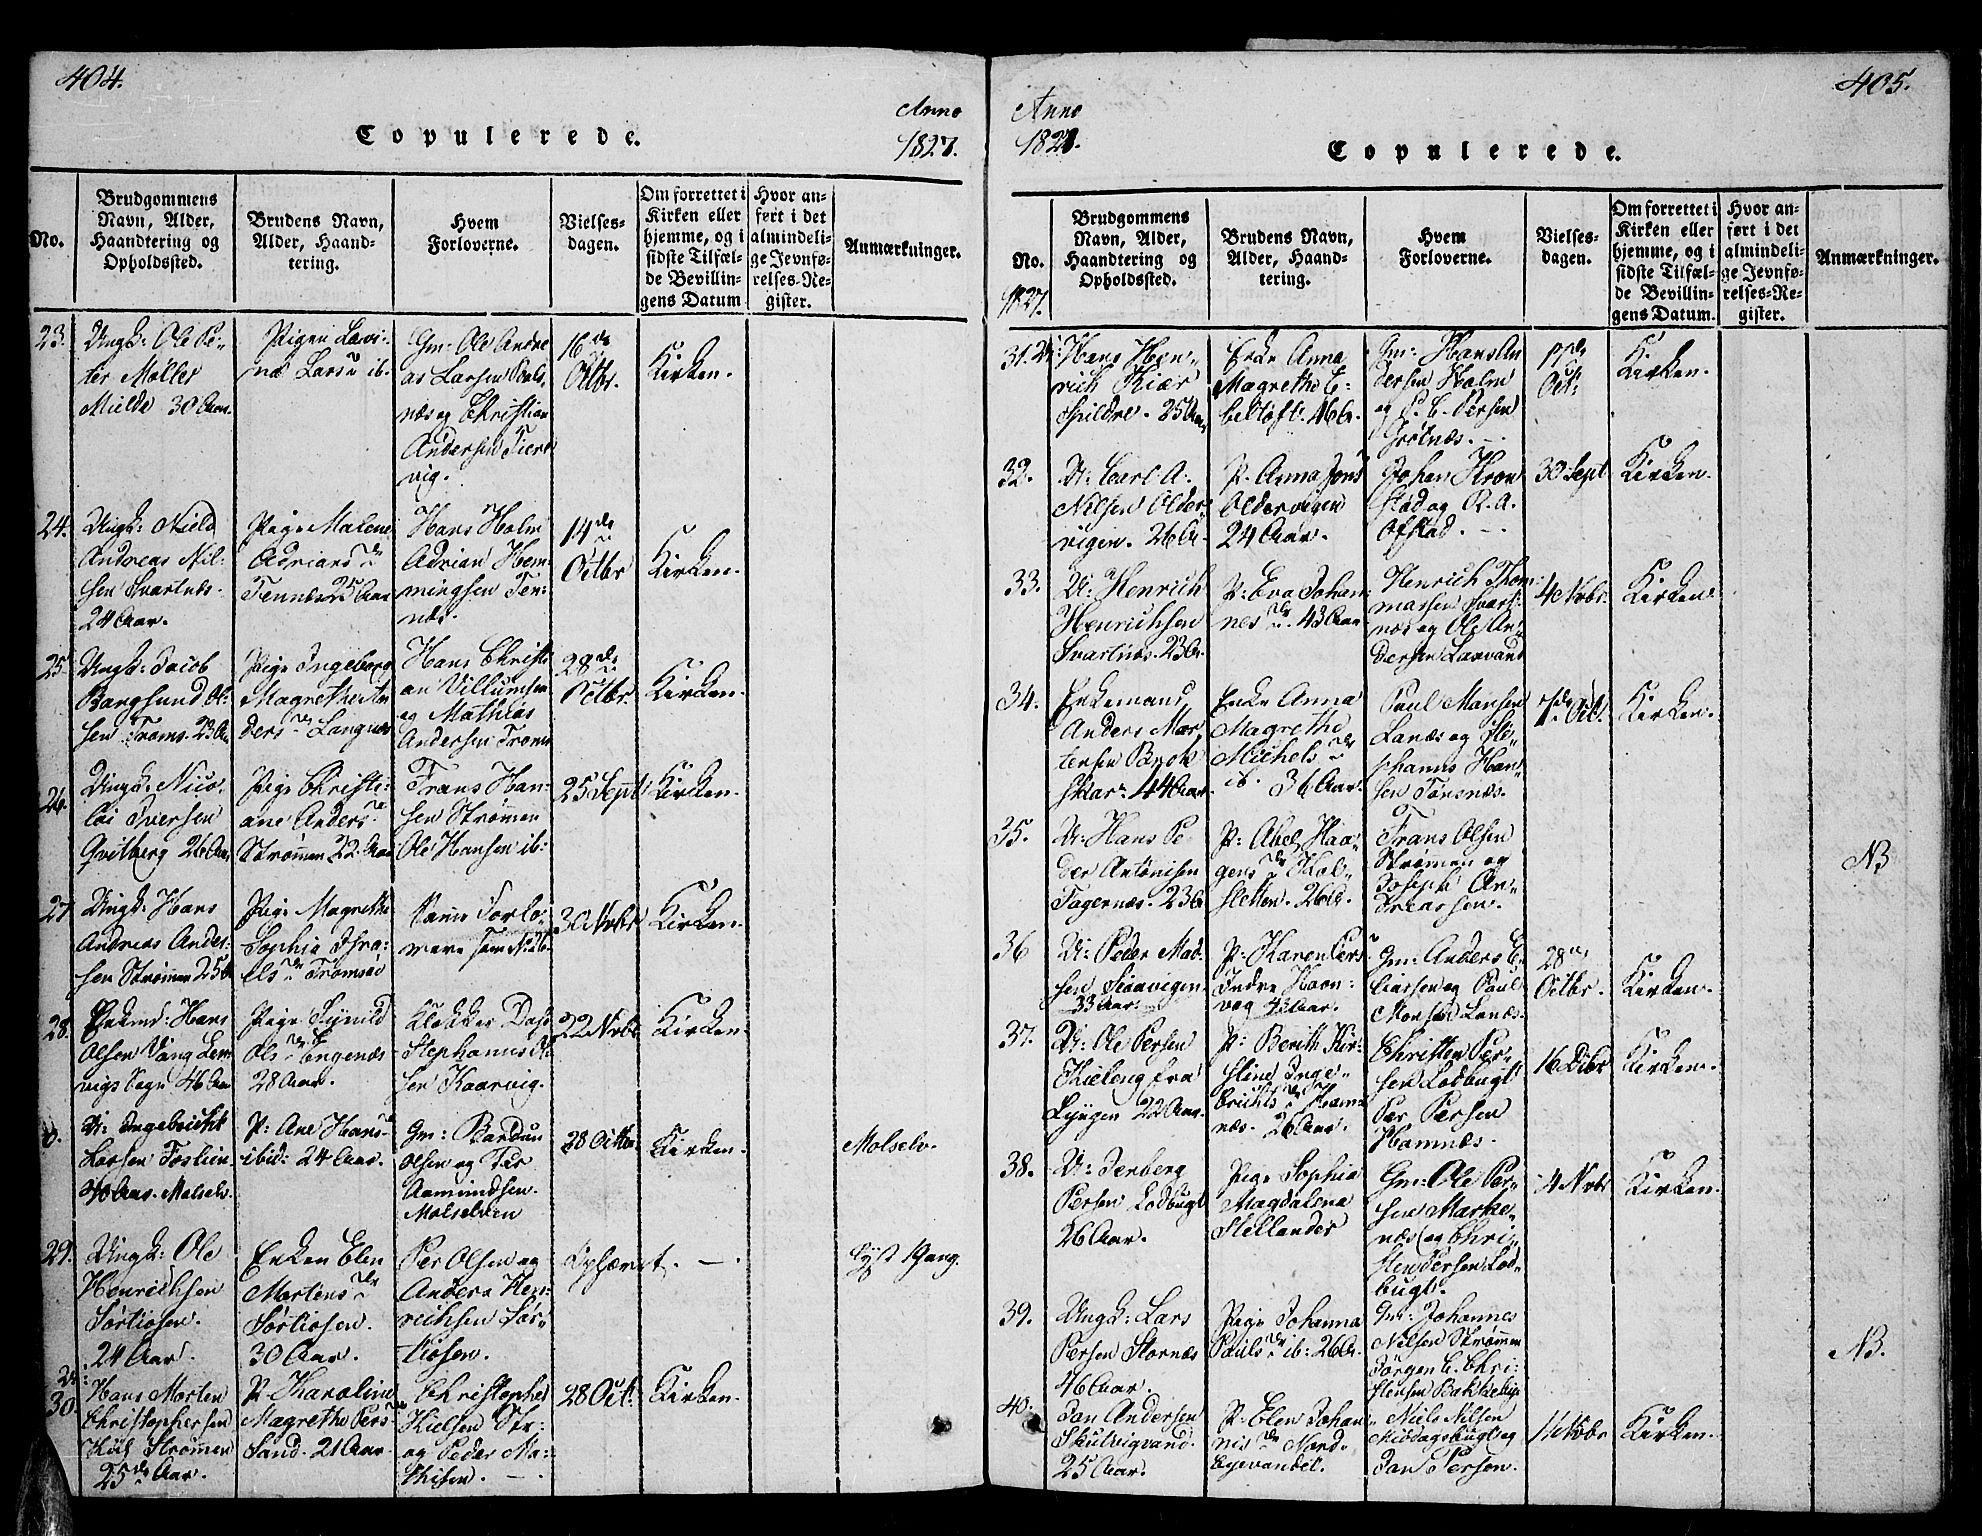 404.
Anno
Copulerede.
1827.
No.
Brudgommens
Navn, Alder,
Haandtering og
Opholdssted.
Brudens Navn,
Alder, Haand-
tering.
Hvem
Forloverne.
Vielses-
dagen.
Om forrettet i
Kirken eller
hjemme, og i
sidste Tilfæl-
de Bevillin-
gens Datum
Hvor an-
ført i det
almindeli-
ge Jevnfø-
relses-Re-
gister.
Anmærkninger.
23.
Ungk: Ole Pe-
ter Møller
Milde 30 Aar.
Pigen Lavi-
næ Lars ib.
Gm: Ole Andre
as Larsen
næs og Christian
Andersen
vig.
16de
Octbr.
Kirken.
24.
Ungk: Niels
Andreas Nil-
sen Svartnæs.
24 Aar.
Pige Malene
Adriansdr
Tennes 25 Aar
Hans Holm
Adrian Hem-
mingsen Ten-
næs.
14de
Octbr
Kirken.
25.
Ungk: Jacob
Bangsund Ol-
sen Troms. 23 Aar
Pige Ingeborg
Magrethe An
dersdr Langnæs
Hans Christi
an Villumsen
og Mathias
Andersen Troms
28de
Octbr.
Kirken.
26.
Ungk: Nico-
lai Iversen
Qvitberg 26 Aar
Pige Christi-
ane Anders
Strømmen 22 Aar
Frans Han-
sen Strømmen
Ole Hansen ib:
25 Sept:
Kirken.
27
Ungk: Hans
Andreas Ander-
sen Strømmen 25
Pige Magrethe
Sophia Isra-
elsdr Tromsøe
Samme Forlo-
vere som No 26.
30 Nvbr
Kirken.
28.
Enkmd: Hans
Olsen Vang Len-
vigs Sogn 46 Aar
Pige Synnild
Olsdr Engenæs
28 Aar.
Klokker Dass
Stephanus Ol-
sen Kaarvig.
22 Nvbr
Kirken.
U: Ingebricht
Larsen Fosliin
40 Aar. Målselv.
P: Ane Hans-
ibid: 24 Aar.
Gm: Bardun
Olsen og Iver
Aamundsen
Målselven
28 Octbr
Kirken.
Molselv.
29.
Ungk: Ole
Henrichsen
Sørtiosen.
24 Aar.
Enken Elen
Mortensdr
Sørtiosen.
30 Aar.
Per Olsen og
Anders Hen-
richsen Sør-
tiosen.
Ophævet. —
Lyst 1 Gang.
30
Hans Morten
Christophersen
Strømmen
25de Aar.
P: Karoline
Magrethe Pers
Sand. 21 Aar
Christopher
Nielsen Str:
og Peder Ma-
thisen. —
28 Oct:
Kirken.
405.
Anno
1827.
Copulerede.
No.
1827.
Brudgommens
Navn, Alder,
Haandtering og
Opholdssted.
Brudens Navn,
Alder, Haand-
tering.
Hvem
Forloverne.
Vielses-
dagen.
Om forrettet i
Kirken eller
hjemme, og i
sidste Tilfæl-
de Bevillin-
gens Datum.
Hvor an-
ført i det
almindeli-
ge Jevnfø-
relses-Re-
gister.
Anmærkninger.
31.
U: Hans Hen-
rich Kiær
Spildre. 25 Aar
Enke Anna
Magrethe E-
beltoft. 46 Ar.
Gm: Hans An
dersen Holm
og P. C. Persen
Grøtnæs. —
17de
Oct:
Kirken.
32.
U: Carl A:
Nilsen Older-
vigen. 26 Ar.
P. Anna Jons
Oldervigen
24 Aar.
Johan Kron
stad og R. A.
Ofstad. —
30 Sept
Kirken.
33.
U: Henrich
Henrichsen
Svartnæs. 23 Ar.
P: Eva Johan-
nesdr. 43 Aar
Henrich Thom-
massen Svart-
næs og Ole An-
dersen Laxvand
4 Nvbr.
Kirken.
34.
Enkemand
Anders Mor-
tensen Brok-
skar. 44 Aar.
Enke Anna
Magrethe
Michelsdr
ib. 36 Aar.
Paul Monsen
Lanæs og Ste-
phanus Han-
sen Tønsnæs.
7de Oct.
Kirken.
35.
U: Hans Pe
der Antonisen
Tagernæs. 23 Ar
P. Abel Haa-
gensdr Kol-
sletten. 26 Ar.
Frans Olsen
Strømmen og
Joseph An-
dreassen.
NB
36
U: Peder Mad-
sen Siaavigen
33 Aar.
P: Karen Pers
Indre Haon-
vog 43 Aar.
Gm: Anders E-
liassen og Paul
Monsen Lanæs.
28de
Octbr.
Kirken.
37.
U: Ole Persen
Kieleng fra
Lyngen 22 Aar.
P: Berith Kir-
stine Inge-
brichtsdr Ham-
næs. 26 Aar.
Christen Per-
sen Lodbugt
Per Persen
Hamnæs.
16 Dcbr
Kirken.
38.
U: Isenberg
Persen Lodbugt
26 Aar.
Pige Sophia
Magdalena
Stellander
Gm: Ole Per-
sen Marke-
næs og Chri-
sten Persen Lod-
bugt.
4 Nvbr
Kirken.
39.
Ungk: Lars
Persen Stornæs
46 Aar.
Pige Johanna
Paulsdr ib: 26 Ar.
Gm: Johannes
Nilsen Strømmen
Jørgen C. Chri-
stensen Bakkeby
NB.
40.
Jan Andersen
Skulvigvand.
25 Aar.
P: Elen Johan-
nisdr Nord-
byevandet.
Niels Nilsen
Middagsbugt og
Jan Persen.
11 Nvbr
Kirken.